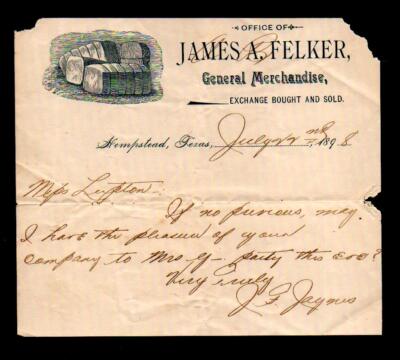 OFFICE OF
JAMES A. FELKER,
General Merchandise,
EXCHANGE BOUGHT AND SOLD.
Hempstead, Texas, July 22nd 1898
Miss Lipton:
If no previous, may
I have the pleasure of your
company to Mrs party this eve?
Very truly
J. F. Jaynes